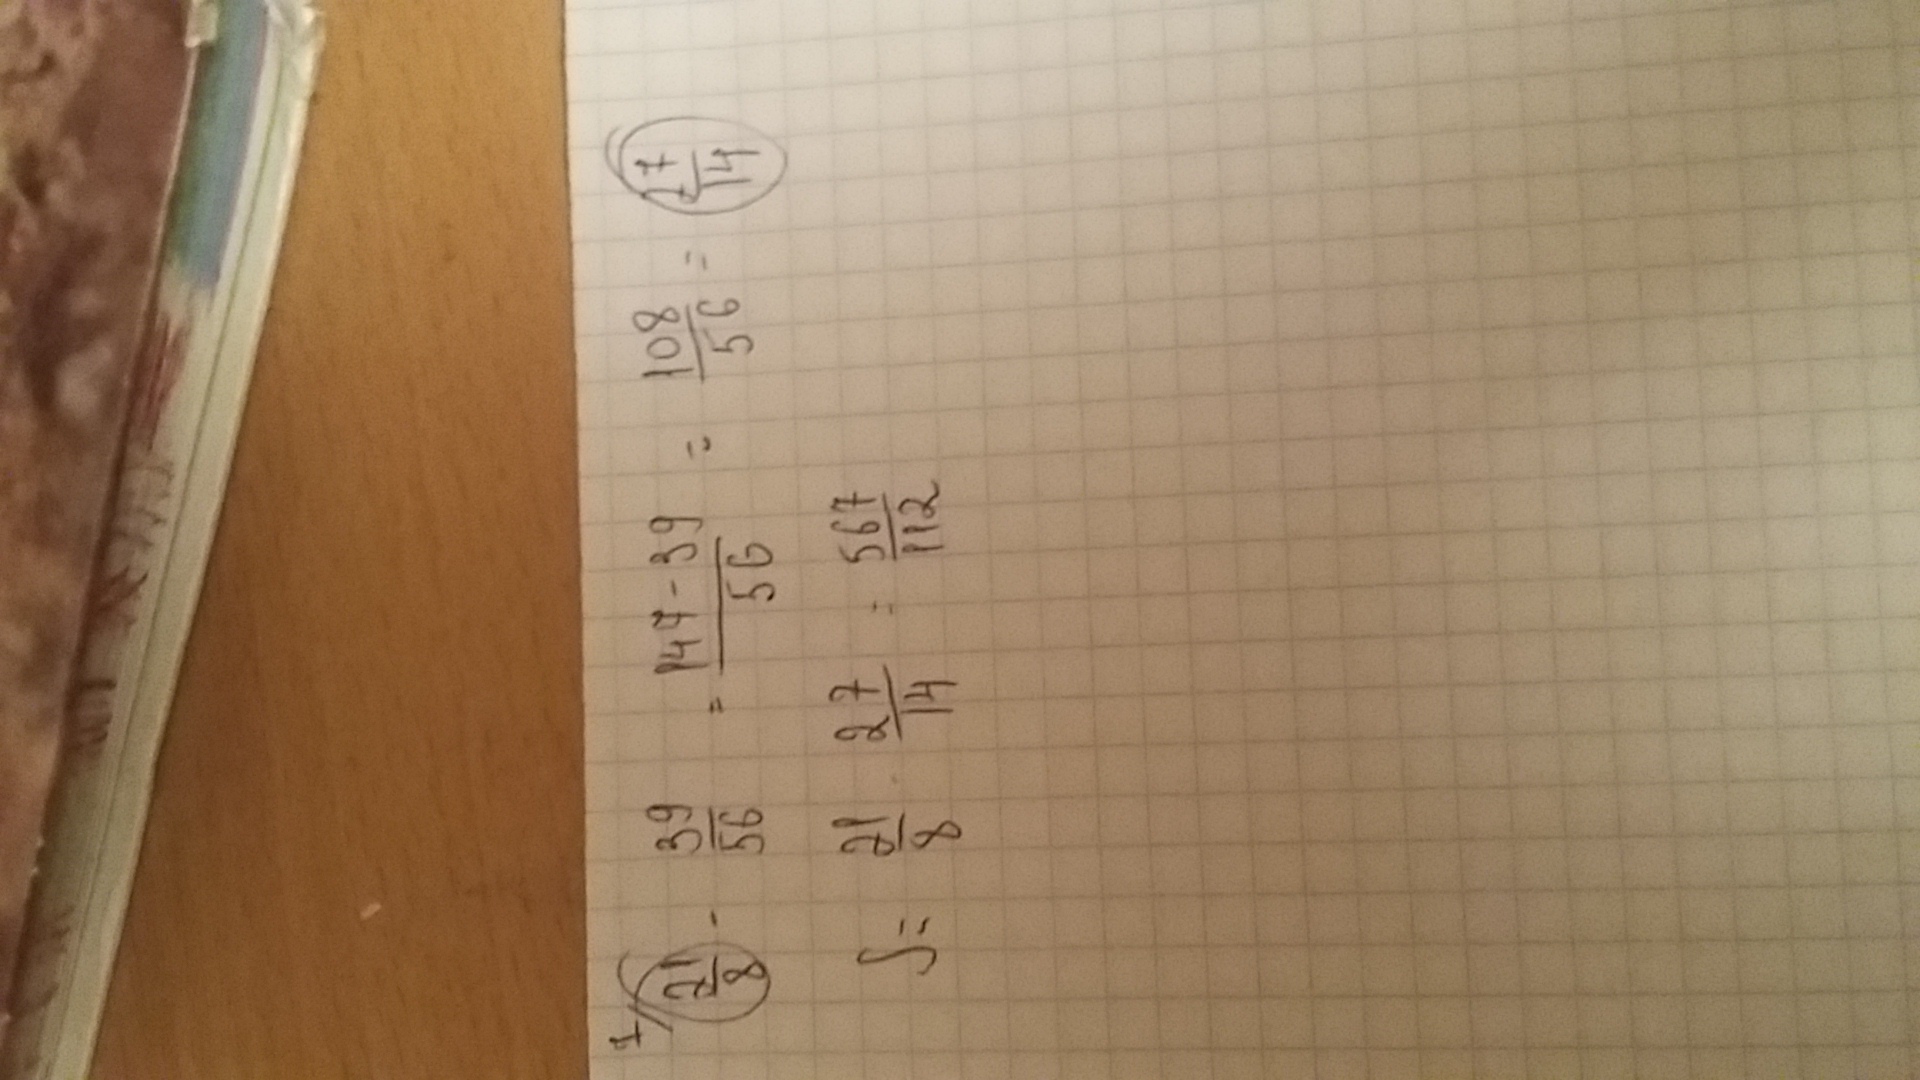 7/ 21/8 - 39/56 = (147-39)/56 = 108/56 = 27/14
S = 21/8 · 27/14 = 567/112